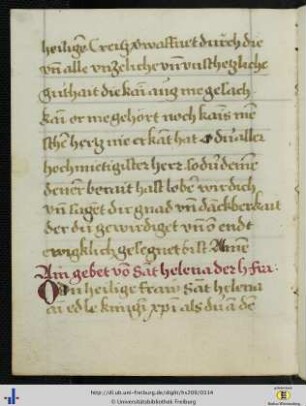 heiligen Creütz erwaffnet durch die
vn̄ alle vnzeliche vn̄ vnschetzliche
guthait die kain aug nie gesach
kain or nie gehört noch kains men
schē hertz nie erkant hat
hochmietigister herr so du deinē
berait hast lobē wir dich
vn̄ sagēt dir gnad vn̄ danckberkait
der du gewirdiget vn̄ on endt
ewigklich gesegnet bist Amē
Ain gebet vō Sāt helena der h. fra:
O Du heilige fraw Sāt helena
ain edle künigī xp̄i als du an dē
http://dl.ub.uni-freiburg.de/diglit/hs209/0314
© Universitätsbibliothek Freiburg